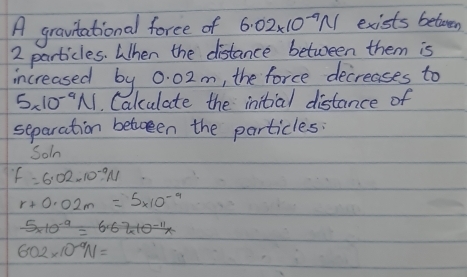 A gravitational force of 6.02x10⁻⁹N exists between
2 particles. When the distance between them is
increased by 0.02m, the force decreases to
5x10⁻⁹N. Calculate the initial distance of
separation between the particles.
Soln
f = 6.02x10⁻⁹N
r+0.02m = 5x10⁻⁹
5x10⁻⁹ = 6.67x10⁻¹¹x
6.02x10⁻⁹N=